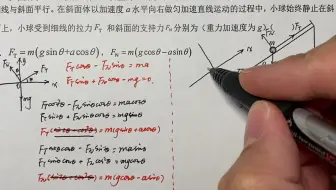 线与斜面平行。在斜面体以加速度a水平向右做匀加速直线运动的过程中，小球始终静止在斜
上，小球受到细线的拉力F_T和斜面的支持力F_N分别为（重力加速度为g）（
F_T=m(gsinθ+acosθ)，F_N=m(gcosθ-asinθ)
F_Tcosθ-F_Nsinθ=ma
F_Tsinθ+F_Ncosθ-mg=0
F_Tcos²θ-F_Nsinθcosθ=macosθ
F_Tsin²θ+F_Nsinθcosθ=mgsinθ
F_T(sin²θ+cos²θ)=m(gsinθ+acosθ)
F_Tsinθcosθ-F_Nsin²θ=masinθ
F_Tsinθcosθ+F_Ncos²θ=mgcosθ
F_N(sin²θ+cos²θ)=m(gcosθ-asinθ)
mg
x